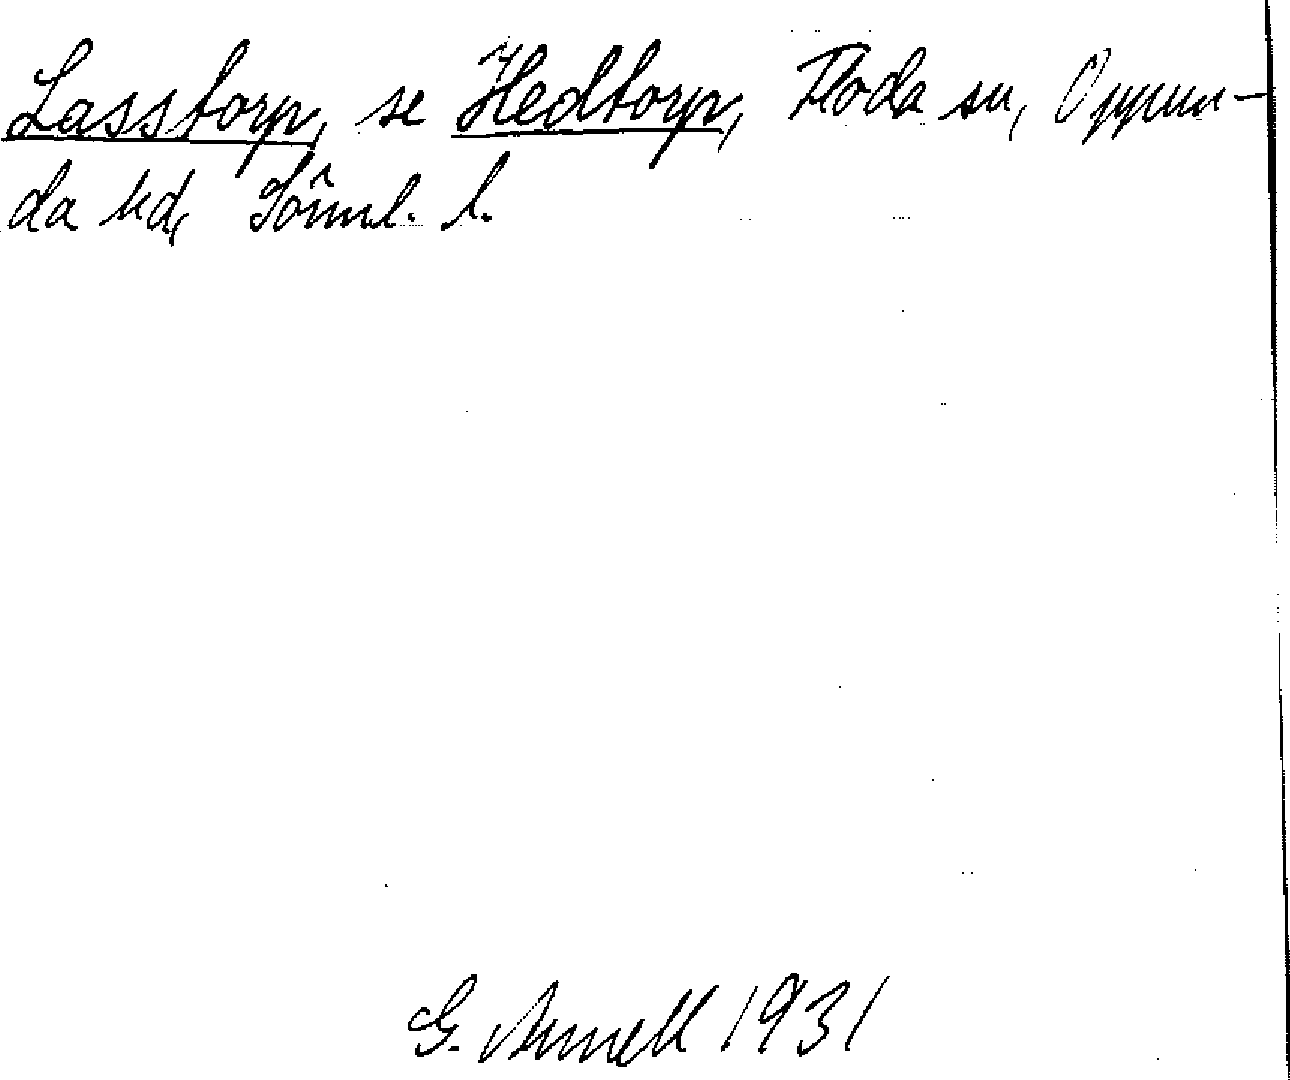 Lasstorp, se Hedtorp, Floda sn, Oppun-
da hd, Sörml. l.
G. Annell 1931